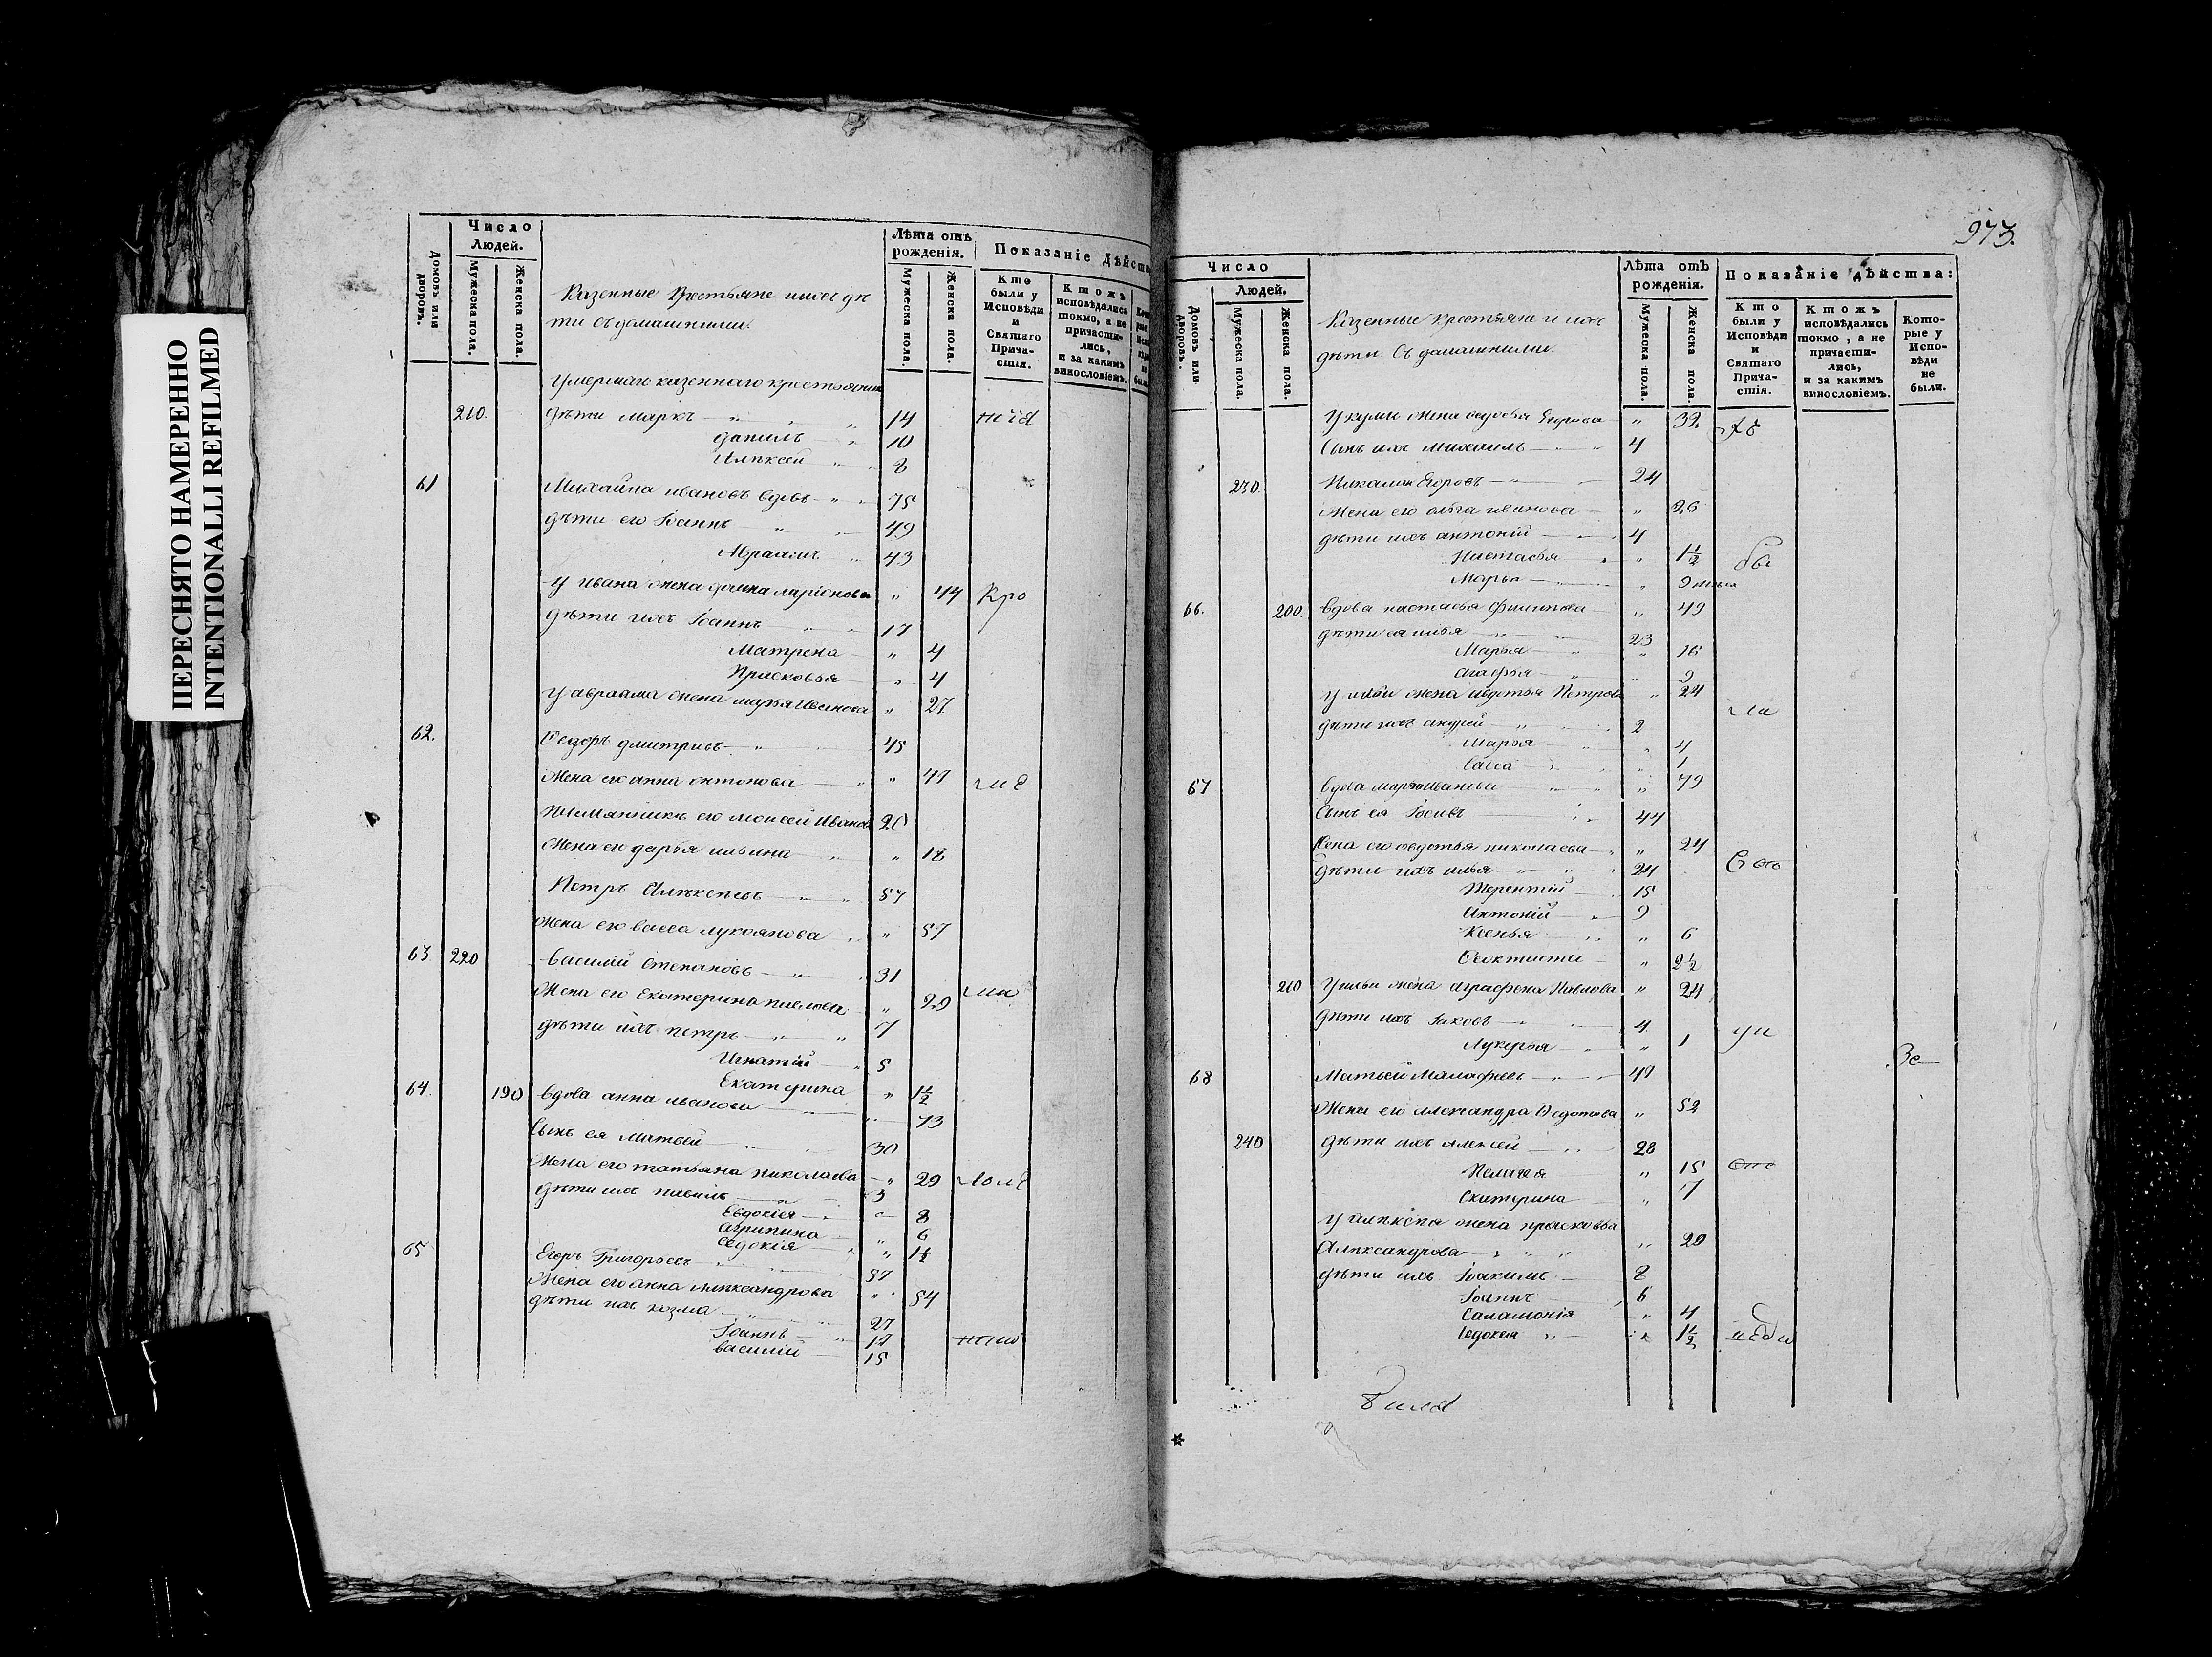 ПЕРЕСНЯТО НАМЕРЕННО
INTENTIONALLI REFILMED
Домовъ или дворовъ.
Число
Людей.
Мужеска пола.
Женска пола.
Казенные Крестьяне ихъ дѣ
ти съ домашними.
Лѣта отъ
рожденія.
Мужеска пола.
Женска пола.
Показаніе Дѣйств
Кто
были у
Исповѣди
и
Святаго
Прича-
стія.
Ктожъ
исповѣдались
токмо, а не
причасти-
лись,
и за какимъ
винословіемъ.
умершаго казеннаго крестьянина
210. дѣти Маркъ 14
Данилъ 10
Алѣксей 8
61 Михайла Ивановъ вдовъ 75
дѣти его Іоаннъ 49
Авраамъ 43
у ивана жена Ларіонова " 44 Кро
дѣти ихъ Іоаннъ 17
Матрена " 4
Прасковья " 4
у авраама жена марья Иванова " 27
62. Ѳедоръ дмитриевъ 45
Жена его анна антонова " 47
племянникъ его моисей Иванов 20
Жена его дарья ильина " 18
Петръ Алѣксѣевъ 57
Жена его васса лукоянова " 57
63. 220 василій степановъ 31
Жена его Екатерина павлова " 29
дѣти ихъ петръ 7
Игнатій 5
Екатерина " 1 1/2
64. 190 вдова анна иванова " 73
Сынъ ея Матвей 30
Жена его татьяна николаева " 29
дѣти ихъ 3
Евдокія " 8
Агрипина " 6
Ѳедокія " 1 1/2
65 Егоръ Григорьевъ 57
Жена его анна Алѣксандрова " 54
дѣти ихъ козма 27
Іоаннъ 17
василій 15
973.
Домовъ или дворовъ.
Число
Людей.
Мужеска пола.
Женска пола.
Казенные крестьяне и ихъ
дѣти съ домашними.
Лѣта отъ
рожденія.
Мужеска пола.
Женска пола.
Показаніе дѣйства:
Кто
были у
Исповѣди
и
Святаго
Прича-
стія.
Ктожъ
исповѣдались
токмо, а не
причасти-
лись,
и за какимъ
винословіемъ.
Кото-
рые у
Испо-
вѣди
не
были.
у кузмы жена ѳедосья Егорова " 32
Сынъ ихъ михаилъ 4
230. Егоровъ 24
Жена его ольга иванова " 26
дѣти ихъ антоній 4
Настасья " 1 1/2
Марья " 9
66. 200. вдова настасья Филипова " 49
дѣти ея илья 23
Марья " 16
агафья " 9
у ильи жена авдотья Петрова " 24
дѣти ихъ андрей 2
Марья " 4
Васса " 1
67 вдова марья иванова " 79
Сынъ ея 44
Жена его авдотья николаева " 24
дѣти ихъ илья 24
Терентій 15
Антоній 9
Ксенья " 6
Ѳеоктиста " 2 1/2
210 у ильи жена Аграфена Павлова " 24
дѣти ихъ Іаковъ 4
Лукерья " 1
68 Матвей Малафеевъ 47
Жена его александра Ѳедотова " 52
240 дѣти ихъ алексей 28
Пелагея " 15
Екатерина " 7
у алѣксѣя жена прасковья
Алѣксандрова " 29
дѣти ихъ Іоакимъ 8
Іоаннъ 6
Саламонія " 4
Ѳедосья " 1 1/2